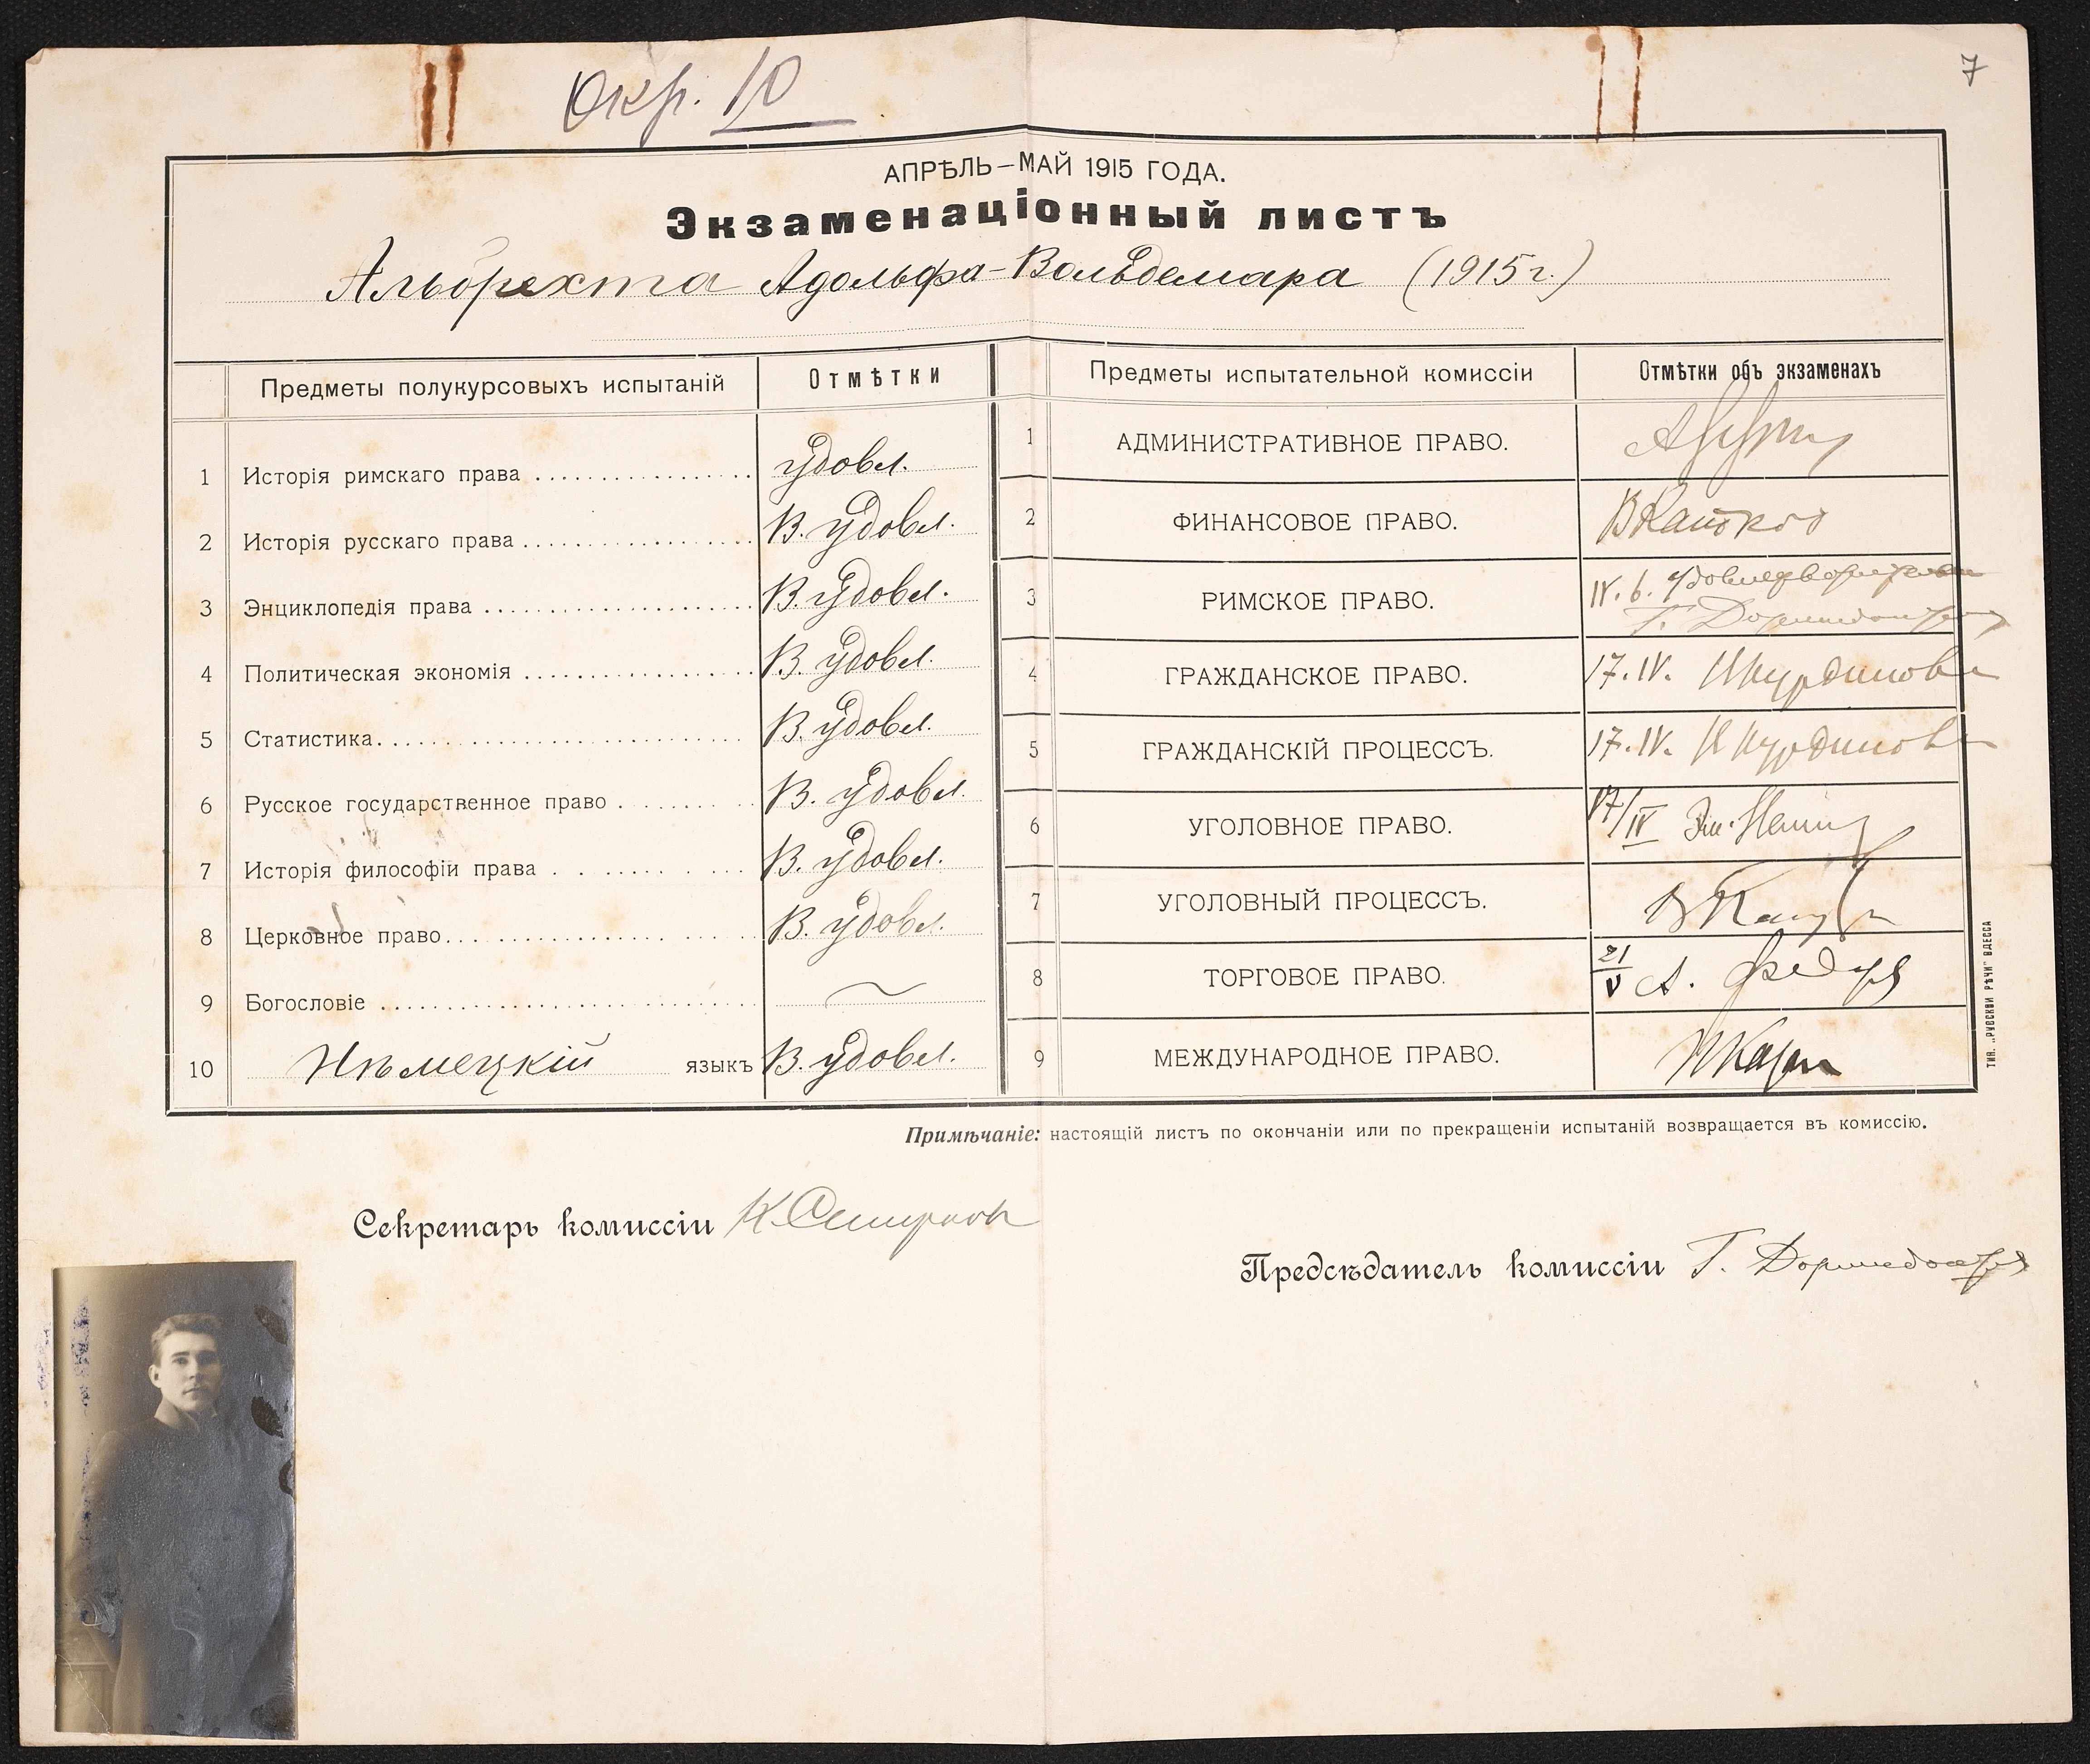 Окр. 10
7
АПРѢЛЬ–МАЙ 1915 ГОДА.
Экзаменаціонный листъ
Альбрехта Адольфа-Вольдемара (1915 г.)
Предметы полукурсовыхъ испытаній
Отмѣтки
1 Исторія римскаго права удовл.
2 Исторія русскаго права В. удовл.
3 Энциклопедія права В. удовл.
4 Политическая экономія В. удовл.
5 Статистика В. удовл.
6 Русское государственное право В. удовл.
7 Исторія философіи права В. удовл.
8 Церковное право В. удовл.
9 Богословіе
10 Нѣмецкій языкъ В. удовл.
Предметы испытательной комиссіи
Отмѣтки объ экзаменахъ
1 АДМИНИСТРАТИВНОЕ ПРАВО.
2 ФИНАНСОВОЕ ПРАВО.
3 РИМСКОЕ ПРАВО. IV. 6.
4 ГРАЖДАНСКОЕ ПРАВО. 17. IV.
5 ГРАЖДАНСКІЙ ПРОЦЕССЪ. 17. IV.
6 УГОЛОВНОЕ ПРАВО. 17/IV
7 УГОЛОВНЫЙ ПРОЦЕССЪ.
8 ТОРГОВОЕ ПРАВО. 21/V А.
9 МЕЖДУНАРОДНОЕ ПРАВО.
ТИП. „РУССКОЙ РѢЧИ" ОДЕССА
Примѣчаніе: настоящій листъ по окончаніи или по прекращеніи испытаній возвращается въ комиссію.
Секретарь комиссіи К. Смирнов
Предсѣдатель комиссіи Г.